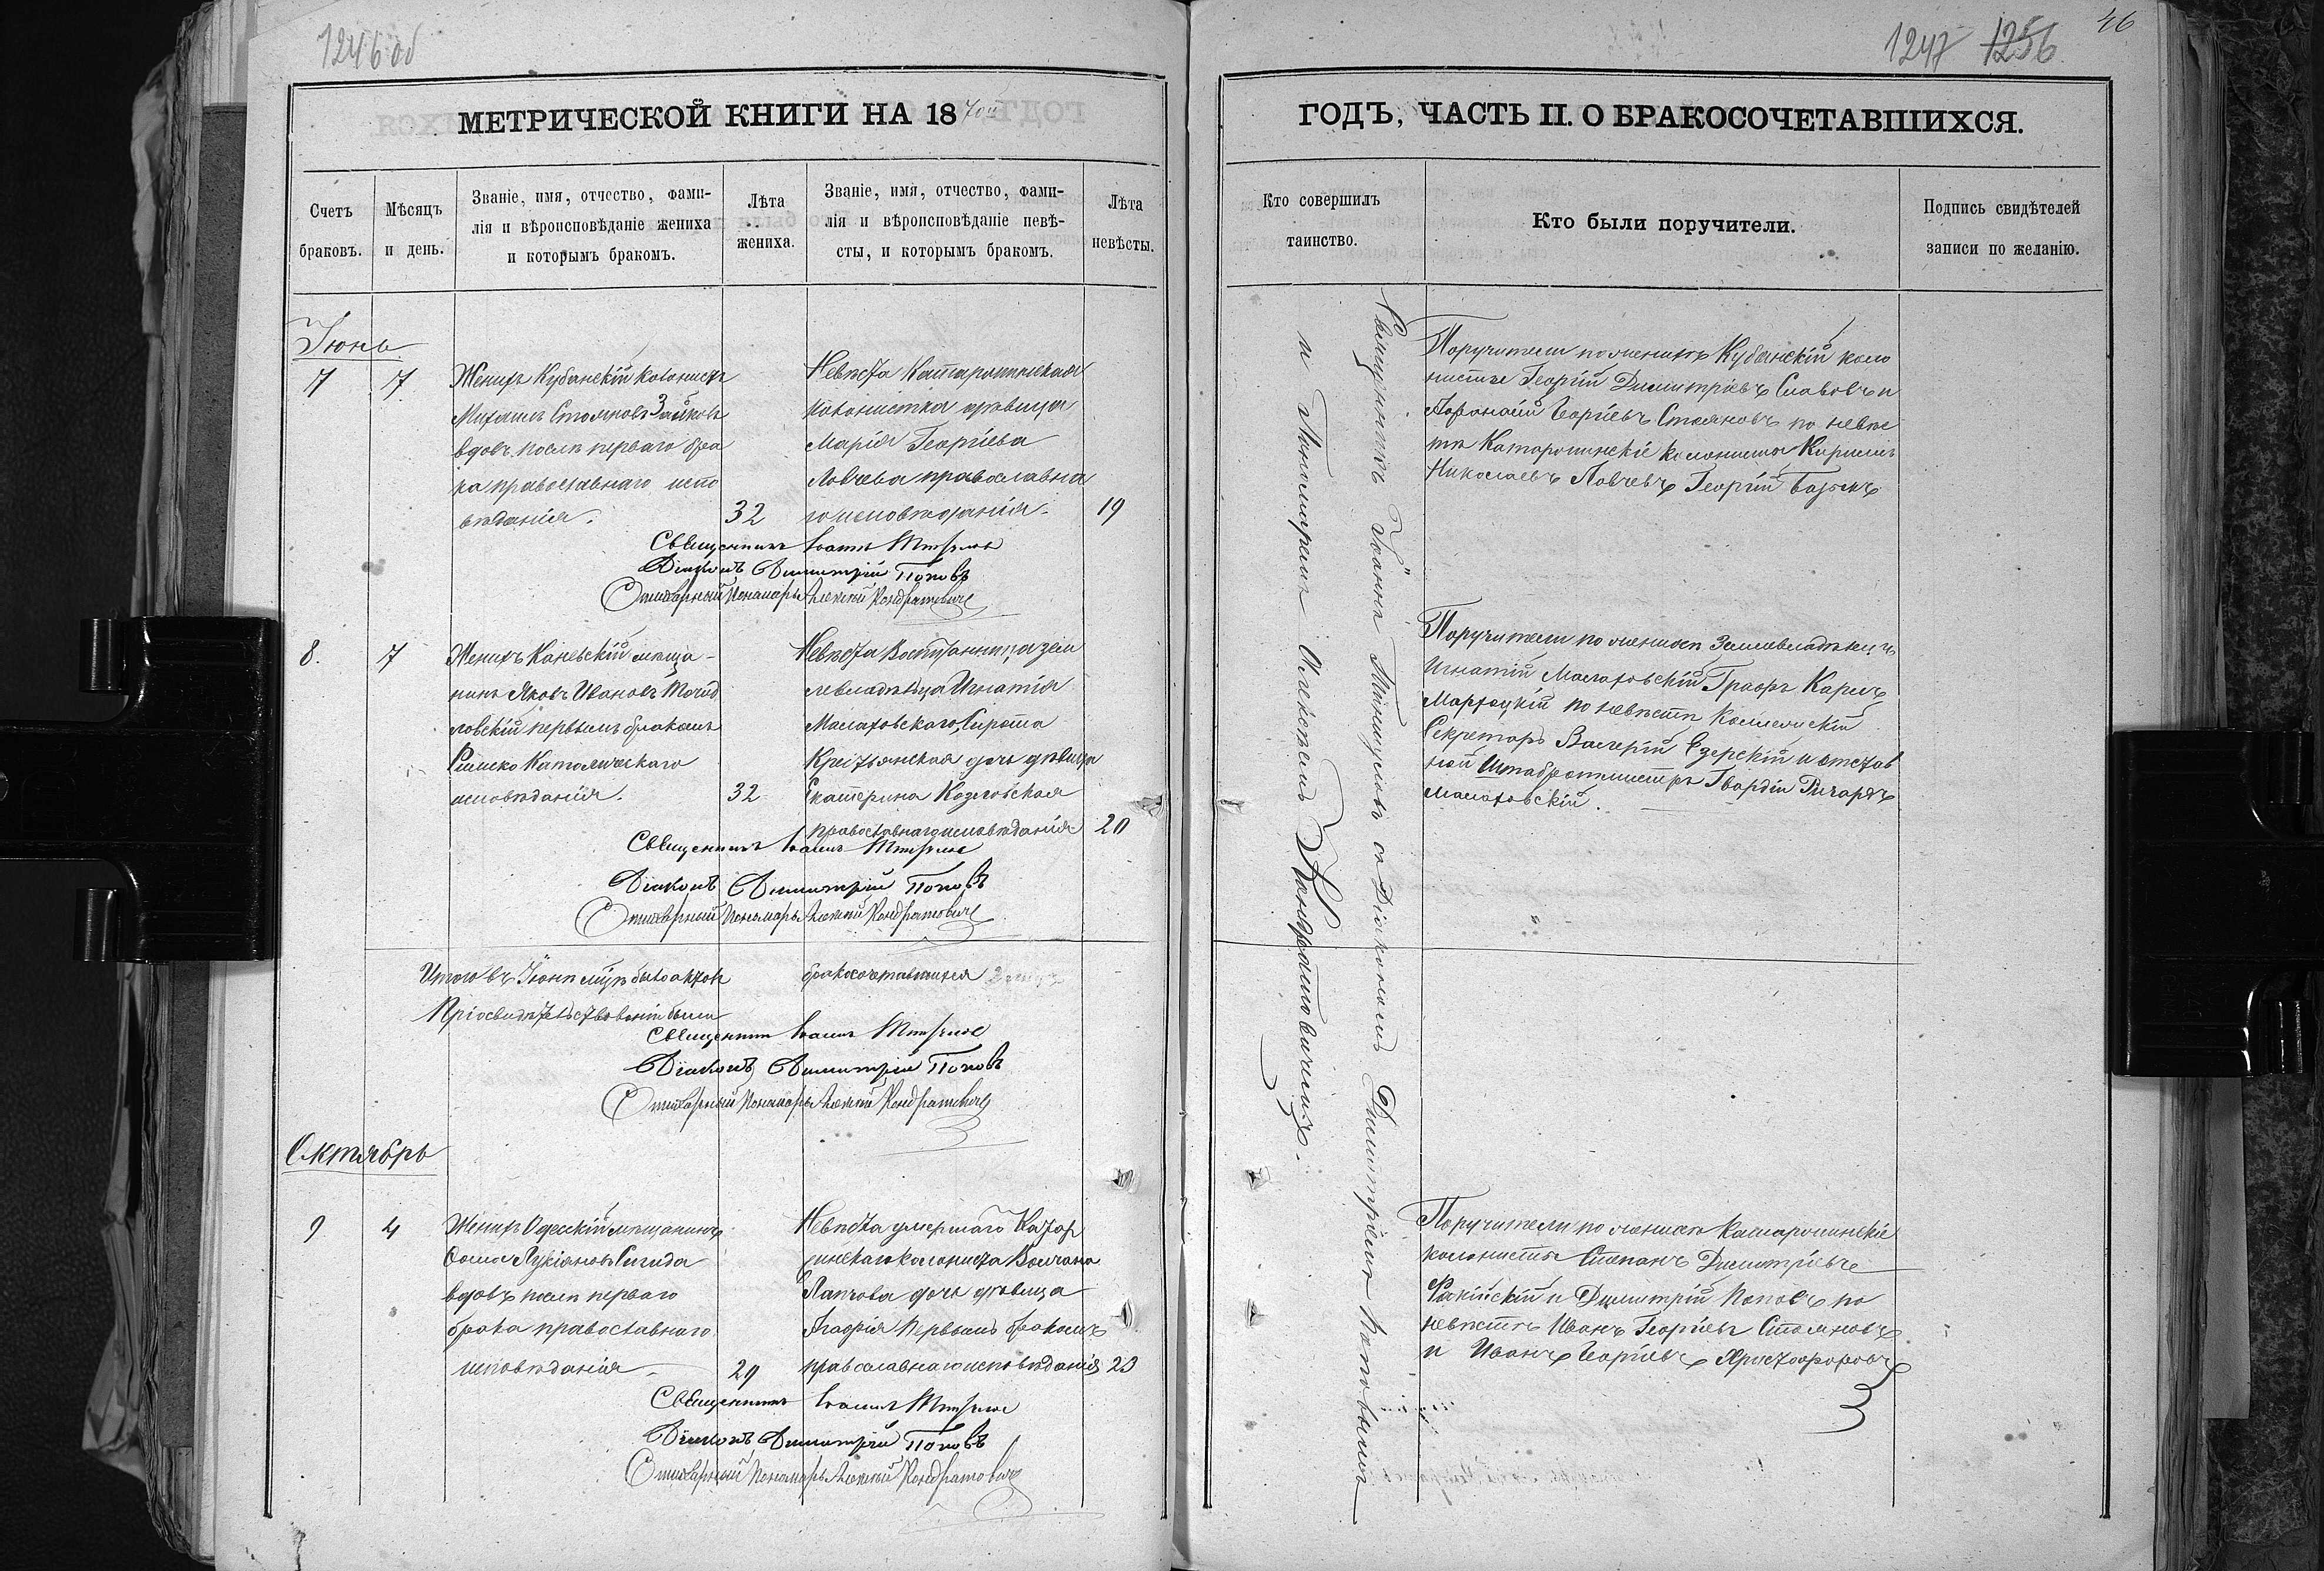 1246 об
МЕТРИЧЕСКОЙ КНИГИ НА 1870й
Счетъ
браковъ.
Мѣсяцъ
и день.
Званіе, имя, отчество, фами-
лія и вѣроисповѣданіе жениха
и которымъ бракомъ.
Лѣта
жениха.
Званіе, имя, отчество, фами-
лія и вѣроисповѣданіе невѣ-
сты, и которымъ бракомъ.
Лѣта
невѣсты.
Іюнь
7
7
Женихъ Кубанскій колонистъ
Михаилъ Стояновъ Зайковъ
вдовъ послѣ перваго бра
ка православнаго испо
вѣданія.
32
Невѣста Катаржинская
колонистка дѣвица
Марія Георгіева
Ловчева православна
го исповѣданія.
19
Священникъ Іоаннъ
Діаконъ Димитрій Поповъ
Стихарный Пономарь Алексѣй Кондратовичъ
8.
7
Женихъ Каневскій мѣща-
нинъ Яковъ Ивановъ
ловскій первымъ бракомъ
Римско Католическаго
исповѣданія.
32
Невѣста Воспитанница зем
левладѣльца Игнатія
Маклаковскаго, Сирота
Крестьянская дочь дѣвица
Екатерина Козловская
православнаго исповѣданія
20
Священникъ Іоаннъ
Діаконъ Димитрій Поповъ
Стихарный Пономарь Алексѣй Кондратовичъ
Итого въ Іюнѣ мцѣ было актовъ бракосочетавшихся
При освидѣтельствованіи были
Священникъ Іоаннъ
Діаконъ Димитрій Поповъ
Стихарный Пономарь Алексѣй Кондратовичъ
Октябрь
9
4
Женихъ Одесскій мѣщанинъ
Ѳома Лукіановъ
вдовъ послѣ перваго
брака православнаго
исповѣданія
29
Невѣста умершаго Катар
жинскаго колониста Волчана
дочь дѣвица
первымъ бракомъ
православнаго исповѣданія
23
Священникъ Іоаннъ
Діаконъ Димитрій Поповъ
Стихарный Пономарь Алексѣй Кондратовичъ
46
1247 1256
ГОДЪ, ЧАСТЬ II. О БРАКОСОЧЕТАВШИХСЯ.
Кто совершилъ
таинство.
Кто были поручители.
Подпись свидѣтелей
записи по желанію.
Священникъ Іоаннъ съ Діакономъ Димитріемъ Поповымъ
и Пономаремъ Алексѣемъ Кондратовичемъ.
Поручители по женихѣ Кубанскій коло
нисты Георгій Димитріевъ Славовъ и
Афонасій Георгіевъ Стояновъ по невѣс
тѣ Катаржинскіе колонисты Кирилъ
Николаевъ Ловчевъ Георгій
Поручители по женихѣ Землевладѣлецъ
Игнатій Графъ Карлъ
по невѣстѣ Коллежскій
Секретарь Валерій Езерскій и отстав
ной Штабротмистръ Гвардіи Ричардъ
Поручители по женихѣ Катаржинскіе
колонисты Степанъ Димитріевъ
и Димитрій Поповъ по
невѣстѣ Иванъ Георгіевъ Стояновъ
и Иванъ Георгіевъ Христофоровъ